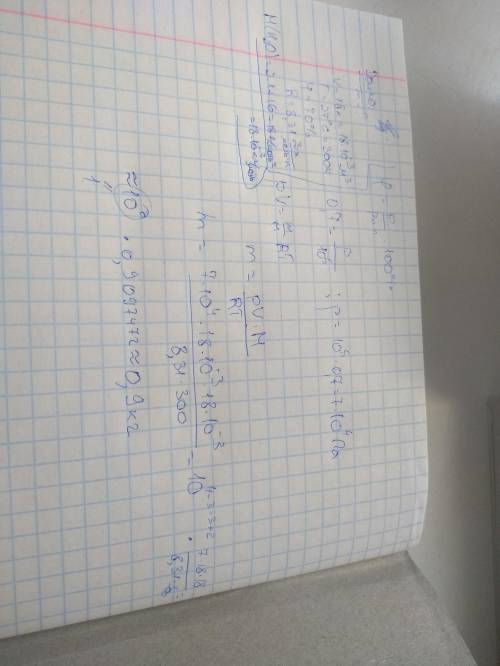 Дано
V = 18 л = 18·10⁻³ м³
t = 27°C = 300K
φ = 70%
R = 8,31 Дж/моль·К
M(H₂O) = 2·1+16 = 18 г/моль
= 18·10⁻³ кг/моль
φ = p/pн.п. · 100%
0,7 = p/10⁵ ; p = 10⁵·0,7 = 7·10⁴ Па
pV = m/M RT
m = pV·M/RT
m = 7·10⁴·18·10⁻³·18·10⁻³/8,31·300 = 10
≈ 10⁰ · 0,9097472 ≈ 0,9 кг
"
1